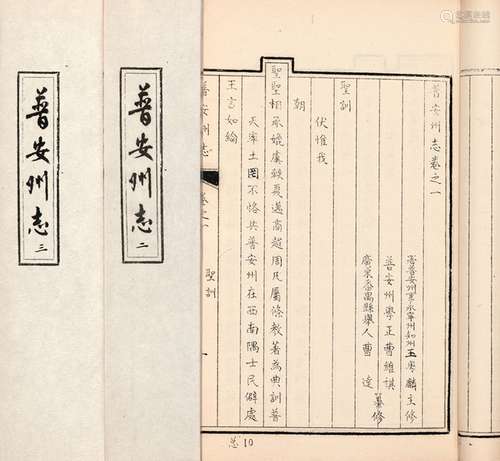 普安州志 三
普安州志 二
普安州志卷之一
王粤麟主修
普安州學正曹維祺
廣東番禺縣舉人曹達
纂修
聖訓
伏惟我
朝
聖聖相承媲虞軼夏邁商超周凡屬條教著為典訓普
天率土罔不恪共普安州在西南隅士民僻處
王言如綸
普安州志
卷之一
聖訓
一
总10